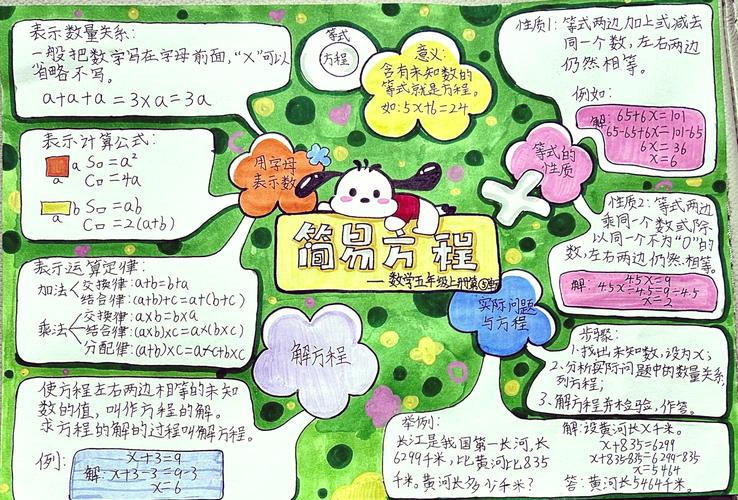 表示数量关系:
一般把数字写在字母前面,“×”可以
省略不写。
a+a+a=3×a=3a
表示计算公式:
a S□=a²
a C□=4a
b S□=ab
a C□=2(a+b)
表示运算定律:
加法 交换律:a+b=b+a
结合律:(a+b)+c=a+(b+c)
乘法 交换律:a×b=b×a
结合律:(a×b)×c=a×(b×c)
分配律:(a+b)×c=a×c+b×c
使方程左右两边相等的未知
数的值,叫作方程的解。
求方程的解的过程叫解方程。
例:
x+3=9
解:x+3-3=9-3
x=6
等式
方程
意义:
含有未知数的
等式就是方程。
如:5x+6=24
用字母
表示数
简易方程
——数学五年级上册第⑤单元
解方程
等式的
性质
实际问题
与方程
性质1:等式两边加上或减去
同一个数,左右两边
仍然相等。
例如:
解:65+6x=101
65-65+6x=101-65
6x=36
x=6
性质2:等式两边
乘同一个数或除
以同一个不为“0”的
数,左右两边仍然相等。
4.5x=9
解:4.5x÷4.5=9÷4.5
x=2
步骤:
1.找出未知数,设为x;
2.分析实际问题中的数量关系,
列方程;
3.解方程并检验,作答。
举例:
长江是我国第一长河,长
6299千米,比黄河比835
千米。黄河长多少千米?
解:设黄河长x千米。
x+835=6299
x+835-835=6299-835
x=5464
答:黄河长5464千米。